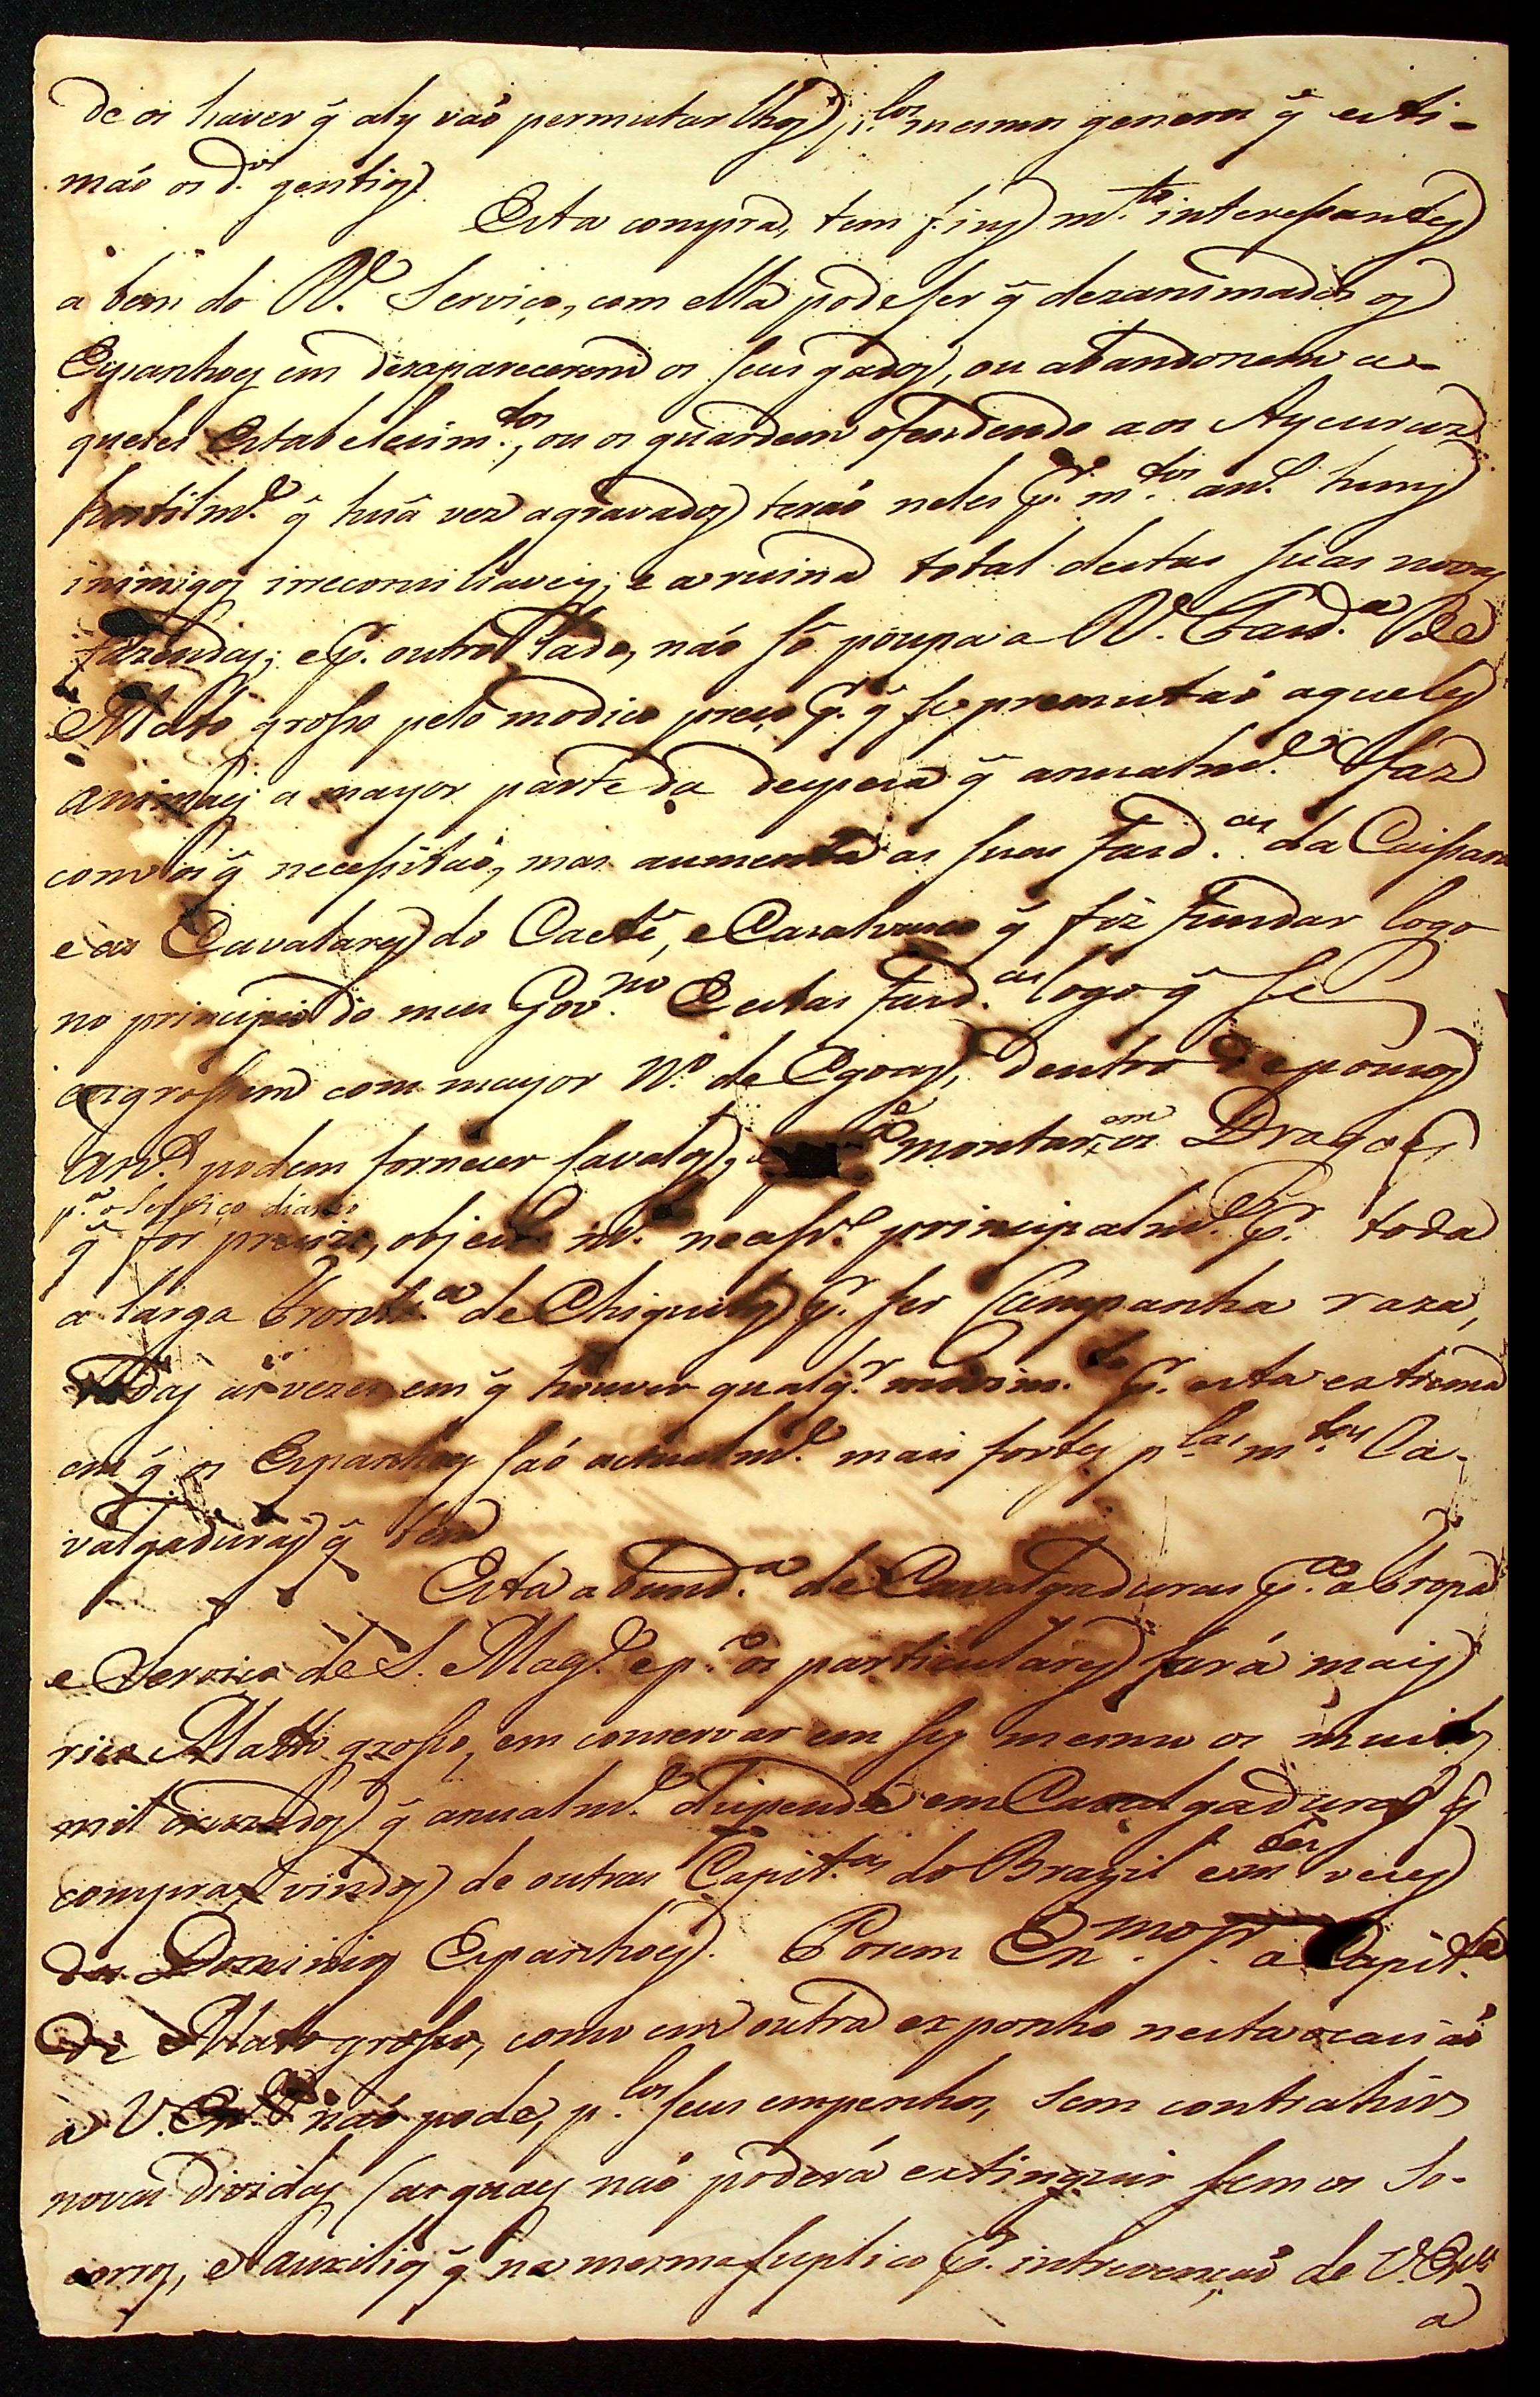 de os haver q̃ aly vaõ permutar lhos p.los mesmos generos q̃ esti-
maõ os d.os gentios.
Esta compra, tem fins m.to interessantes
a bem do R. Serviço, com ella pode ser q̃ dezanimados os
Espanhoes em dezaparecerem os seus gados, ou abandonem a-
queles Estabelecim.tos, ou os guardem ofendendo aos Aycurus
hostilm.e q̃ huã vez agravados teraõ neles p.r m.tos an.s huns
inimigos irreconciliaveis, e a ruina total destas suas novas
fazendas; e p.r outro lado, naõ só poupa a R. Fazd.a de
Mato grosso pelo modico preço p.r q̃ se premutaõ aqueles
animaes a mayor parte da despeza q̃ anualm.e faz
com os q̃ necessitaõ, mas aumenta as suas fazd.as da Caissara
e as Cavalares do Caeté, e Casalvasco q̃ fiz fundar logo
no principio do meu Gov.no Estas fazd.as logo q̃ se
engrossem com mayor N.o de Egoas, dentro de poucos
An.s podem fornecer cavalos, p.a montarem os Dragoes
p.a o serviço diario
q̃ for precizo, objecto m.to necess.o principalm.e p.r toda
a larga Front.a de Chiquitos p.r ser Campanha raza,
todas as vezes em q̃ houver qualq.r movim.to p.r esta extrema
em q̃ os Espanhoes saõ actualm.e mais fortes p.las m.tas Ca-
valgaduras q̃ tem
Esta abund.a de Cavalgaduras p.a a tropa
e Serviço de S. Mag.e e p.a os particulares fará mais
rico Matto grosso, em conservar em sy mesmo os muitos
mil cruzados q̃ anualm.e dispende em Cavalgaduras q̃
compra vindos de outras Capit.as do Brazil e m.tas vezes
dos Dominios Espanhoes. Porem Ex.mo S.r a Capit.a
de Mato grosso, como em outra exponho nesta ocasiaõ
a V. Ex.a naõ pode, p.los seus empenhos, sem contrahir
novas dividas (as quaes naõ poderá extinguir sem os So-
corros, e auxilios q̃ na mesma suplico p.r intrevençaõ de V. Ex.a
a